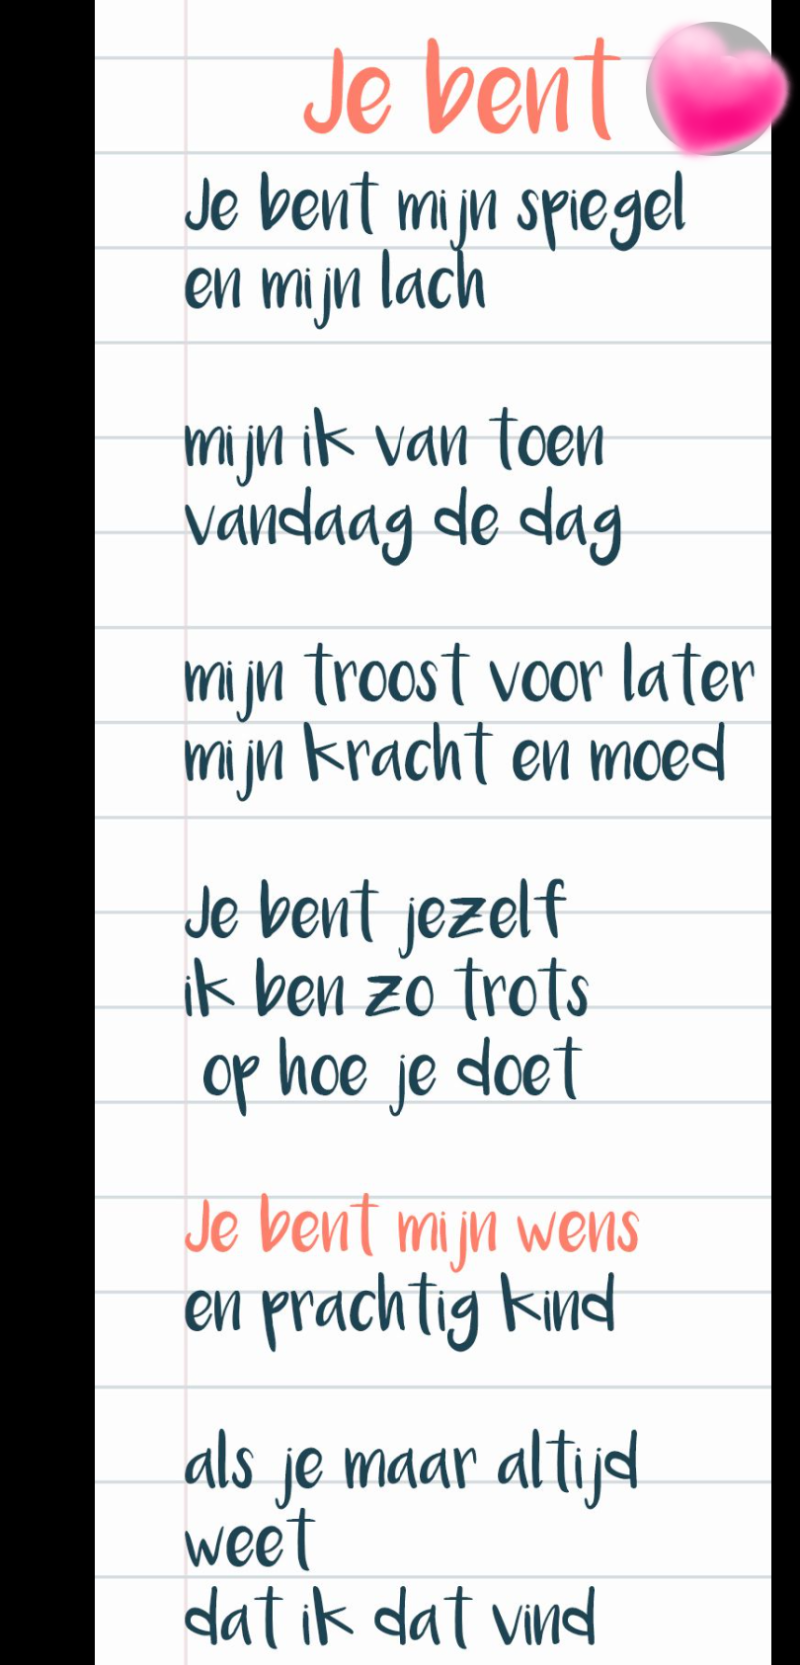 Je bent
Je bent mijn spiegel
en mijn lach
mijn ik van toen
vandaag de dag
mijn troost voor later
mijn kracht en moed
Je bent jezelf
ik ben zo trots
op hoe je doet
Je bent mijn wens
en prachtig kind
als je maar altijd
weet
dat ik dat vind